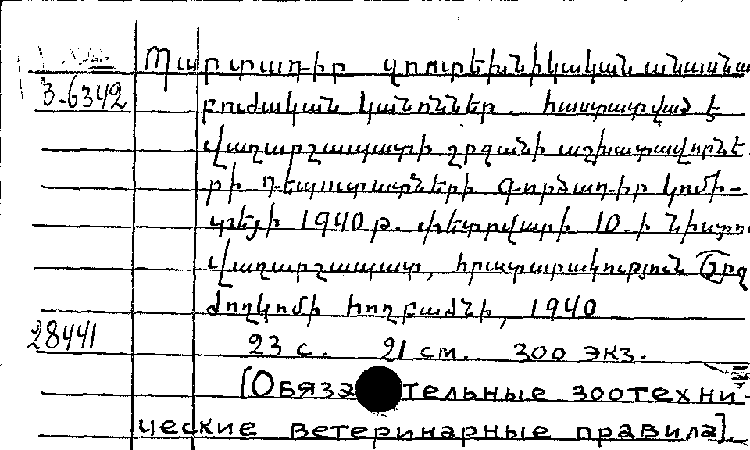 Պարտադիր զոոտեխնիկական անասնա
3-6342
բուժական կանոններ. հաստատված է
Վաղարշապատի շրջանի աշխատավորնե-
րի դեպուտատների գործադիր կոմի-
տեյի 1940 թ. փետրվարի 10-ի նիստու
Վաղարշապատ, հրատարակություն Շրջ
ժողկոմի հողբաժնի, 1940
28441
23 с. 21 cm. 300 экз.
(Обязательные зоотехни-
ческие ветеринарные правила).